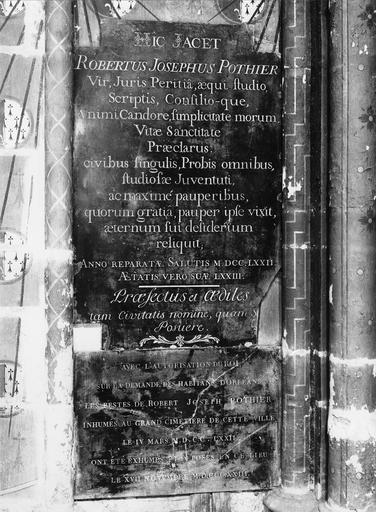 HIC JACET
ROBERTUS JOSEPHUS POTHIER
Vir, Juris Peritiâ, æqui studio
Scriptis, Consilio-que,
Animi Candore, simplicitate morum
Vitæ Sanctitate
Præclarus.
civibus singulis, Probis omnibus,
studiosæ Juventuti,
ac maximè pauperibus,
quorum gratia, pauper ipse vixit,
æternum sui desiderium
reliquit,
ANNO REPARATÆ SALUTIS M DCC LXXII
ÆTATIS VERO SUÆ LXXIII.
Præfectus et Ædiles
tam Civitatis nomine, quam
Posuere.
AVEC L'AUTORISATION DU ROI,
SUR LA DEMANDE DES HABITANS D'ORLEANS
LES RESTES DE ROBERT JOSEPH POTHIER
INHUMES AU GRAND CIMETIERE DE CETTE VILLE
LE IV MARS M.D.CC.LXXII
ONT ÉTÉ EXHUMES ET DEPOSES EN CE LIEU
LE XVII NOVEMBRE